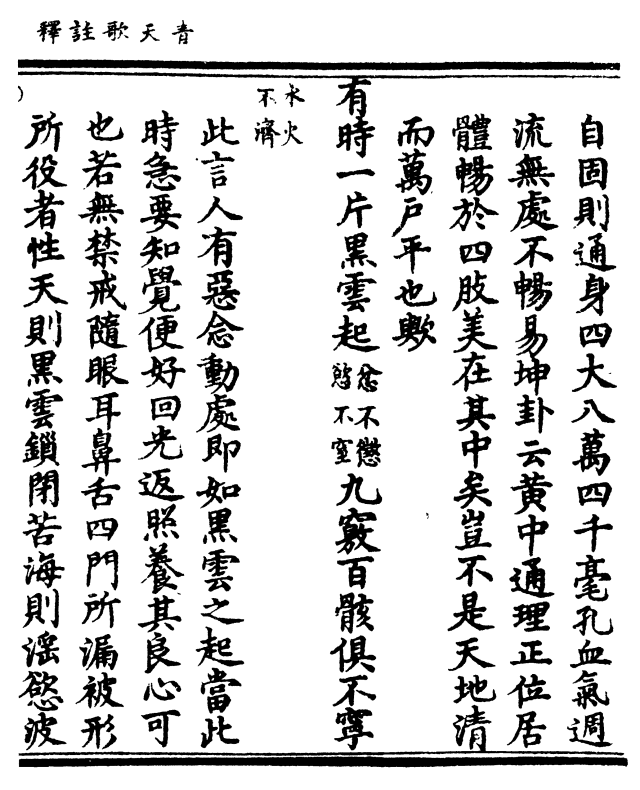 青天歌註釋
自固則通身四大八萬四千毫孔血氣週
流無處不暢易坤卦云黃中通理正位居
體暢於四肢美在其中矣豈不是天地清
而萬戶平也歟
有時一片黑雲起忿不懲慾不窒九竅百骸俱不寧
水火不濟
此言人有惡念動處即如黑雲之起當此
時急要知覺便好回光返照養其良心可
也若無禁戒隨眼耳鼻舌四門所漏被形
所役者性天則黑雲鎖閉苦海則淫慾波